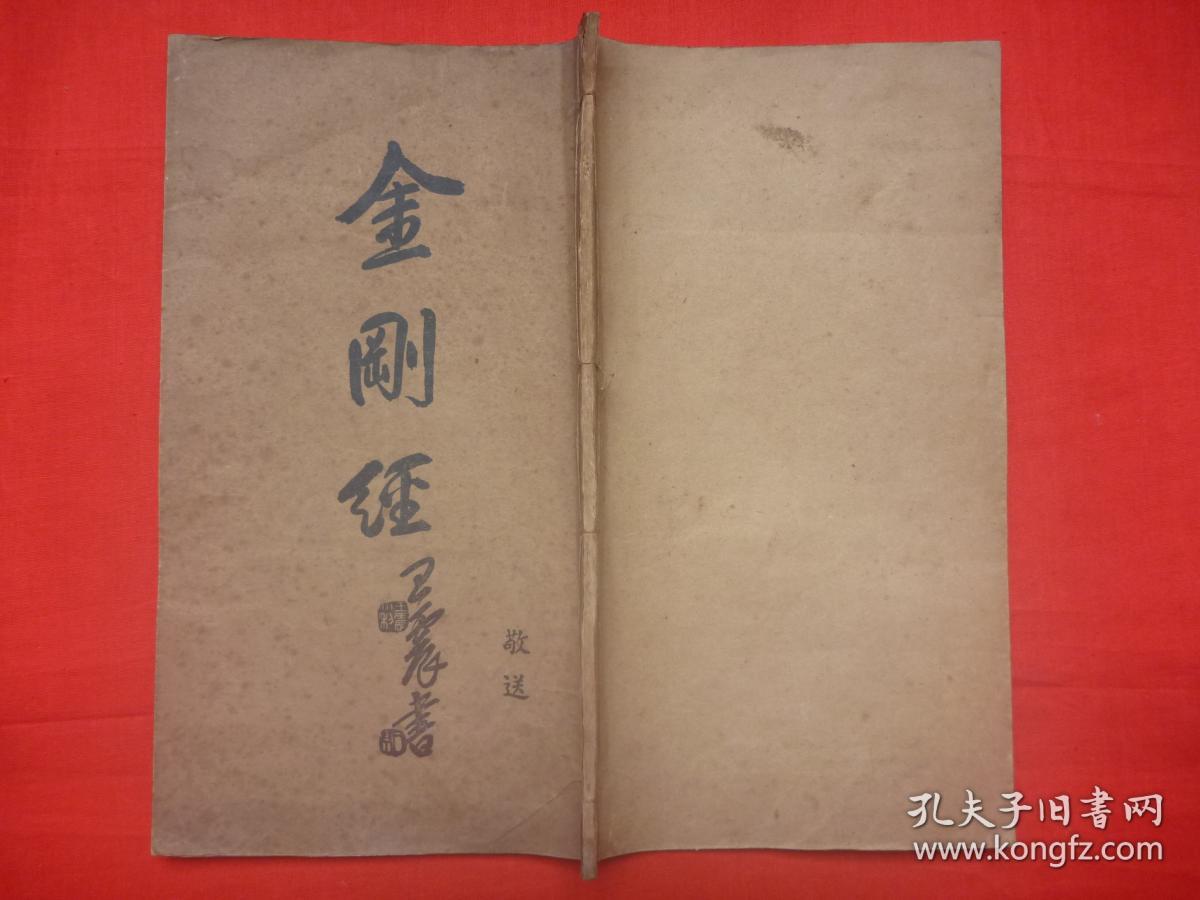 金剛經
王震書
敬送
孔夫子旧书网
www.kongfz.com